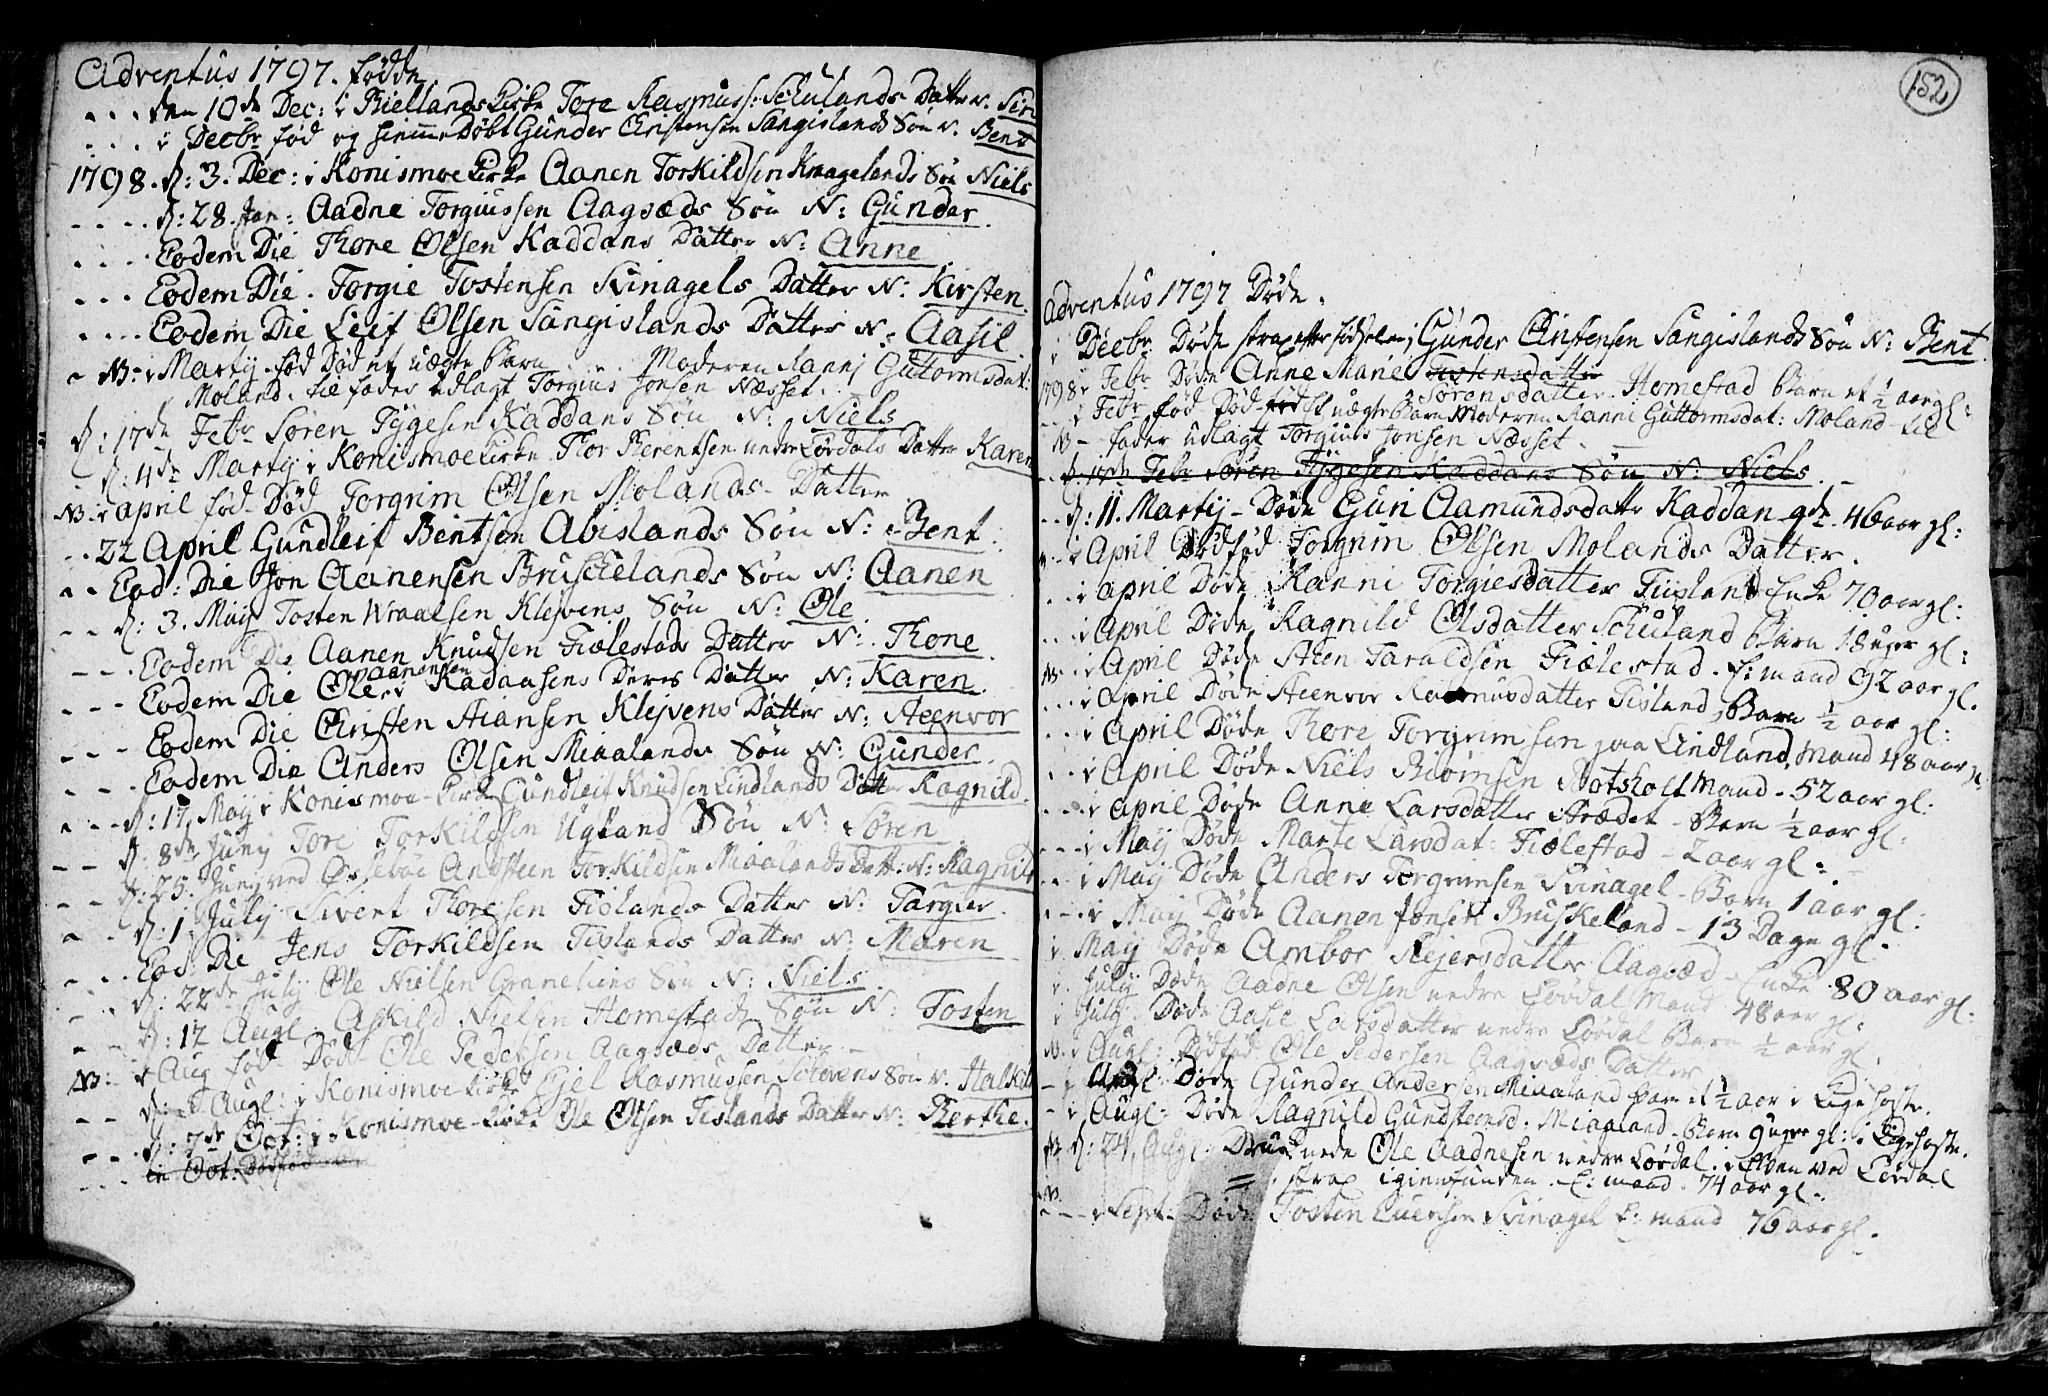 Adventus 1797. fødde
den 10de Dec: i Biellands Kirke Tore Rasmuss: Schulands Datter N. Siri
i Decbr fød og hiemmeDøbt Gunder Christensen Sangislands Søn N. Bent
1798. d: 3. Dec: i Konismoe Kirke Aanen Torkildsen Knagelands Søn Niels
d: 28. Jan: Aadne Torgiussen Aagsæds Søn N: Gunder
Eodem Die Thore Olsen Kaddans Datter N: Anne
Eodem Die. Torgie Tostensen Svinagels Datter N: Kirsten.
Eodem Die Leif Olsen Sangislands Datter N: Aasil
NB: i Martij fød Død et uægte Barn Moderen Ranni Guttormsdat:
Moland. til fader udlagt Torgius Jonsen Næsset.
d: 17de Febr Søren Tygesen Kaddans Søn N: Niels
d: 4de Martij i Konismoe Kirke Thor Berentsen nedre Lørdals Datter Karen
NB. i april fød Død Torgrim Olsen Molands Datter
22 April Gundleif Bentsen Abislands Søn N: Bent.
Eod: Die Jon Aanensen Bruschelands Søn N: Aanen
d: 3. Maij Tosten Wraalsen Klevens Søn N: Ole
Eodem Die Aanen Knudsen Fiælestads Datter N: Thone
Aanensen
Eodem Die Ole Kadaasens Deres Datter N: Karen
Eodem Die Christen Stiansen Klejvens Datter N: Steenvor
Eodem Die Anders Olsen Miaalands Søn N: Gunder
d: 17. Maij i Konismoe Kirke Gundleif Knudsen Lindlands Datter Ragnild
d: 8de Junij Tore Torkildsen Ugland Søn N: Søren
d: 25. Junij ved Øsseboe Andsteen Torkildsen Miaalands Datt: N: Ragnild
d: 1. Julij Sivert Thoresen Tislands Datter N: Targier
Eod: Die Jens Torkildsen Tislands Datter N: Maren
d: 22de Julij Ole Nielsen Gramehiens Søn N: Niels
d: 12 Augl. Askild Nielsen Homestads Søn N: Tosten
NB: i Aug fød Død Ole Pedersen Aagsæds Datter
Augl: i Konismoe Kirke Ejel Rasmussen Søn N. Halkild
d: 7de Oct: i Konismoe Kirke Ole Olsen Tislands Datter N: Berthe.
in Oct: Dødfød
152
Adventus 1797 Døde.
i Decbr Døde strax efter fødselen Gunder Christensen Sangislands Søn N: Bent
1798 i Febr Døde Anne Marie Sørensdatter Homestad Barn et 1/2 aar gl:
i Febr fød Død et uægte Barn Moderen Ranni Guttormsdat: Moland til
fader udlagt Torgius Jonsen Næsset
d: 17de Febr Søren Tygesen Kaddans Søn N: Niels
d: 11. Martij Døde Guri Aamundsdattr Kaddan gde 46 aar gl:
i April Dødfød Torgrim Olsen Molands Datter.
i april Døde Ranni Torgiesdatter Tiisland Enke 70 aar gl:
i April Døde Ragnild Olsdatter Schuland Barn 18 uger gl:
i April Døde Steen Taraldsen Fiælestad. E: mand 92 aar gl.
i April Døde Steenvor Rasmusdatter Tisland Barn 1/2 aar gl:
i April Døde Thore Torgrimsen paa Lindland Mand 48 aar gl
i April Døde Niels Biørnsen Botsholt Mand - 52 aar gl:
i april Døde Anne Larsdatter Strædet Barn 1/2 aar gl:
i Maij Døde Marte Larsdat: Fiælestad - 2 aar gl:
i Maij Døde Anders Torgrimsen Svinagel - Barn 1 aar gl:
i Maij Døde Aanen Jonsen Bruskeland - 13 Dage gl.
i Maij Døde Ambor Reiersdatter Aagsæd - Enke 80 aar gl:
i Julij Døde Aadne Olsen nedre Lørdal Mand 48 aar gl:
i Julij Døde Aasil Larsdatter nedre Lørdal Barn 1/2 aar gl:
N. i Augl: Dødfød Ole Pedersen Aagsæds Datter
i Augl: Døde Gunder Andersen Miaaland Barn 1/2 aar i Kighoste.
i Augl: Døde Ragnild Gundsteensd: Miaaland Barn 9 uger gl: i Kighoste.
d: 24. Augl. Druknede Ole Aadnesen nedre Lørdal. i Elven ved Lørdal
strax igienfunden. E: mand. 74 aar gl.
NB. i Sept. Døde Tosten Svinagel E: mand 76 aar gl.